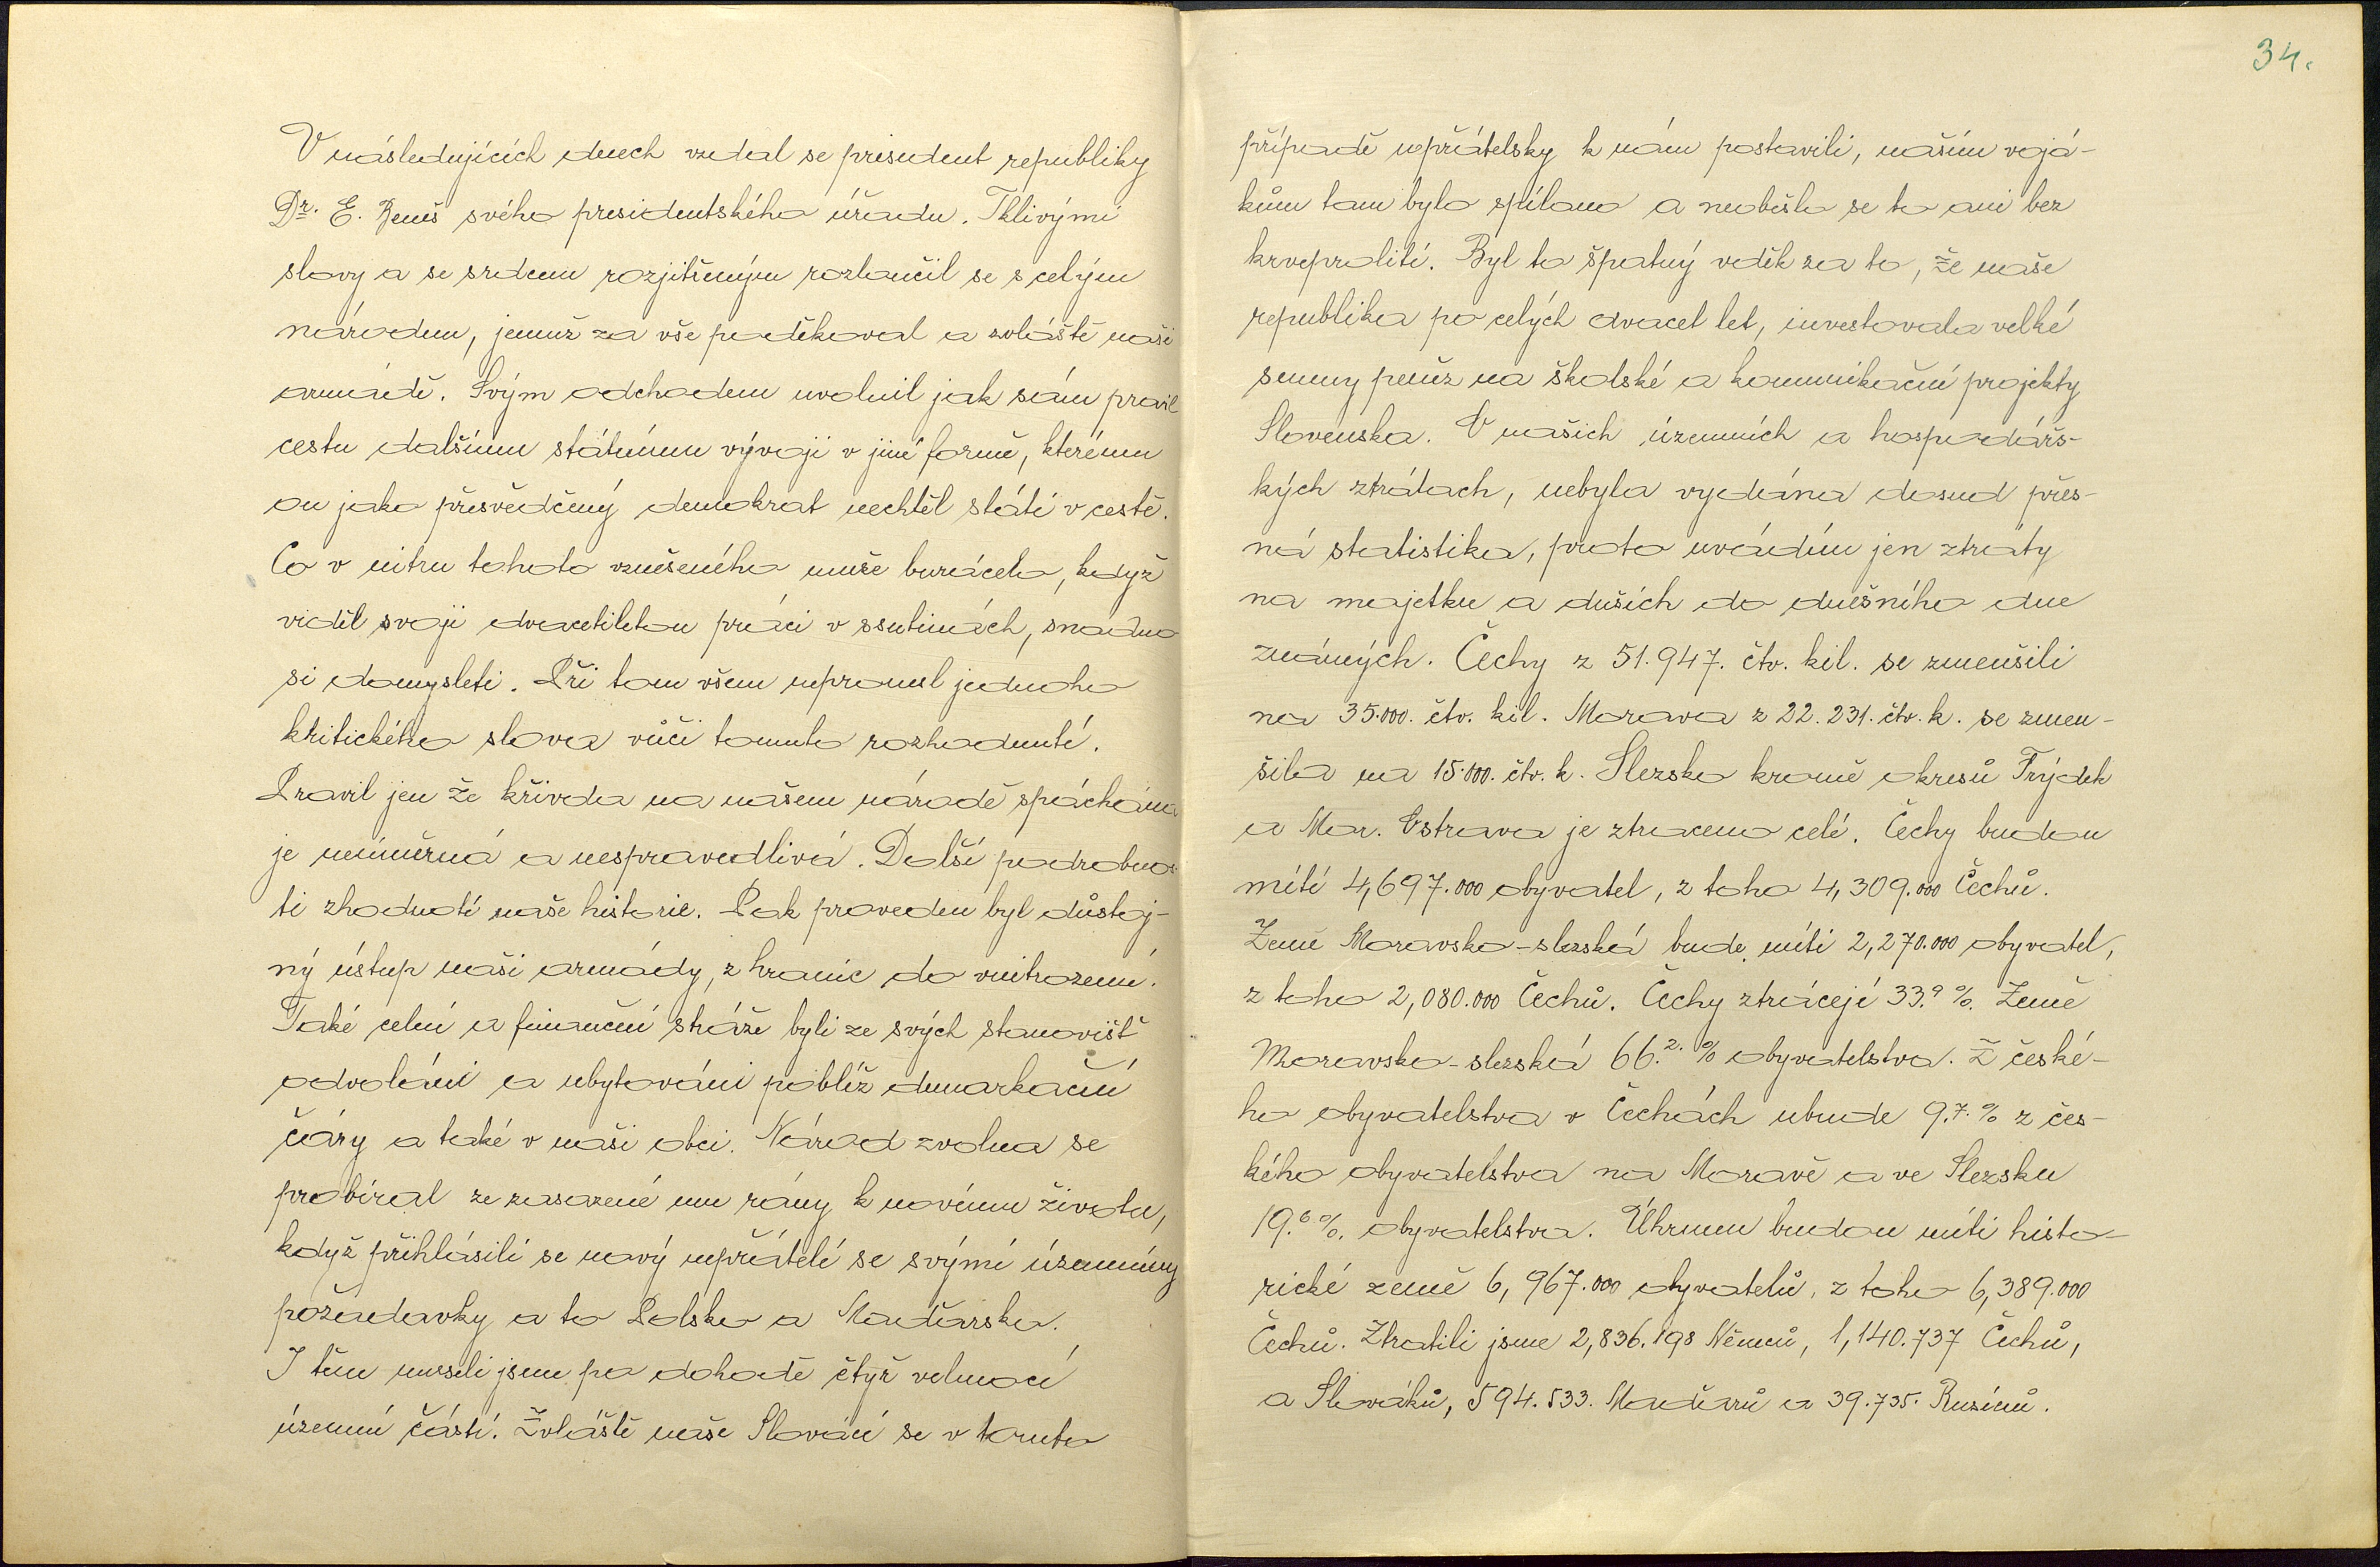 V následujících dnech vzdal se president republiky
Dr. E. Beneš svého presidentského úřadu. Tklivými
slovy a se srdcem rozjitřeným rozloučil se s celým
národem, jemuž za vše poděkoval a zvláště naši
armádě. Svým odchodem uvolnil jak sám pravil
cestu dalšímu státnímu vývoji v jiné formě, kterému
on jako přesvědčený demokrat nechtěl státi v cestě.
Co v nitru tohoto vznešeného muže burácelo, když
viděl svoji dvacetiletou práci v ssutinách, snadno
si domysleti. Při tom všem nepronesl jednoho
kritického slova vůči tomuto rozhodnutí.
Pravil jen že křivda na našem národě spáchána
je nesmírná a nespravedlivá. Další podrobnos-
ti zhodnotí naše historie. Pak proveden byl důstoj-
ný ústup naši armády, z hranic do vnitrozemí.
Také celní a finanční stráže byli ze svých stanovišť
odvoláni a ubytováni poblíž demarkační
čáry a také v naši obci. Národ zvolna se
probíral ze zasazené mu rány k novému životu,
když přihlásili se nový nepřátelé se svými územními
požadavky a to Polsko a Maďarsko.
I těm museli jsme po dohodě čtyř velmocí
územní částí. Zvláště naše Slováci se v tomto
34.
případě nepřátelsky k nám postavili, našim vojá-
kům tam bylo spíláno a neobešlo se to ani bez
krveprolití. Byl to špatný vděk za to, že naše
republika po celých dvacet let, investovala velké
summy peněz na školské a komunikační projekty
Slovenska. O našich územních a hospodářs-
kých ztrátach, nebyla vydána dosud přes-
ná statistika, proto uvádím jen ztráty
na majetku a duších do dnešního dne
známých. Čechy z 51.947. čtv. kil. se zmenšili
na 35.000. čtv. kil. Morava z 22.231. čtv. k. se zmen-
šila na 15.000. čtv. k. Slezsko kromě okresů Frýdek
a Mor. Ostrava je ztraceno celé. Čechy budou
míti 4,697.000 obyvatel, z toho 4,309.000 Čechů.
Země Moravsko-slezská bude míti 2,270.000 obyvatel,
z toho 2,080.000 Čechů. Čechy ztrácejí 33.9 %. Země
Moravsko-slezská 66.2. % obyvatelstva. Z české-
ho obyvatelstva v Čechách ubude 9.7. % z čes-
kého obyvatelstva na Moravě a ve Slezsku
19.6 %. obyvatelstva. Úhrnem budou míti histo-
rické země 6,967.000 obyvatelů, z toho 6,389.000
Čechů. Ztratili jsme 2,836.198 Němců, 1,140.737 Čechů,
a Slováků, 594.533. Maďarů a 39.735. Rusínů.